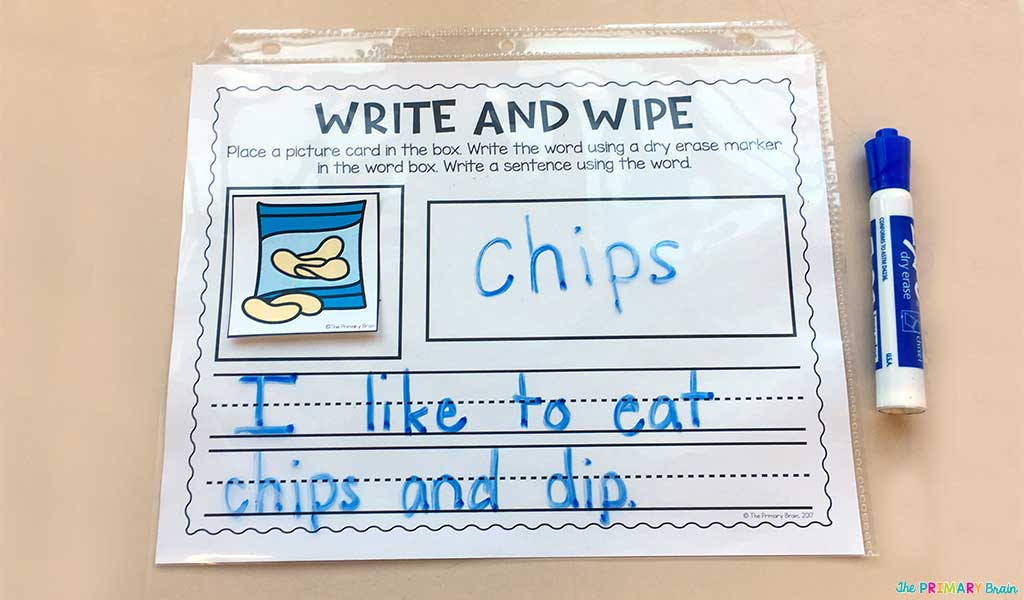 WRITE AND WIPE
Place a picture card in the box. Write the word using a dry erase marker
in the word box. Write a sentence using the word.
©The Primary Brain
chips
I like to eat
chips and dip.
© The Primary Brain, 2017
CONFORMS TO ASTM D4236
dry erase
chisel
U.S.A.
The PRIMARY Brain